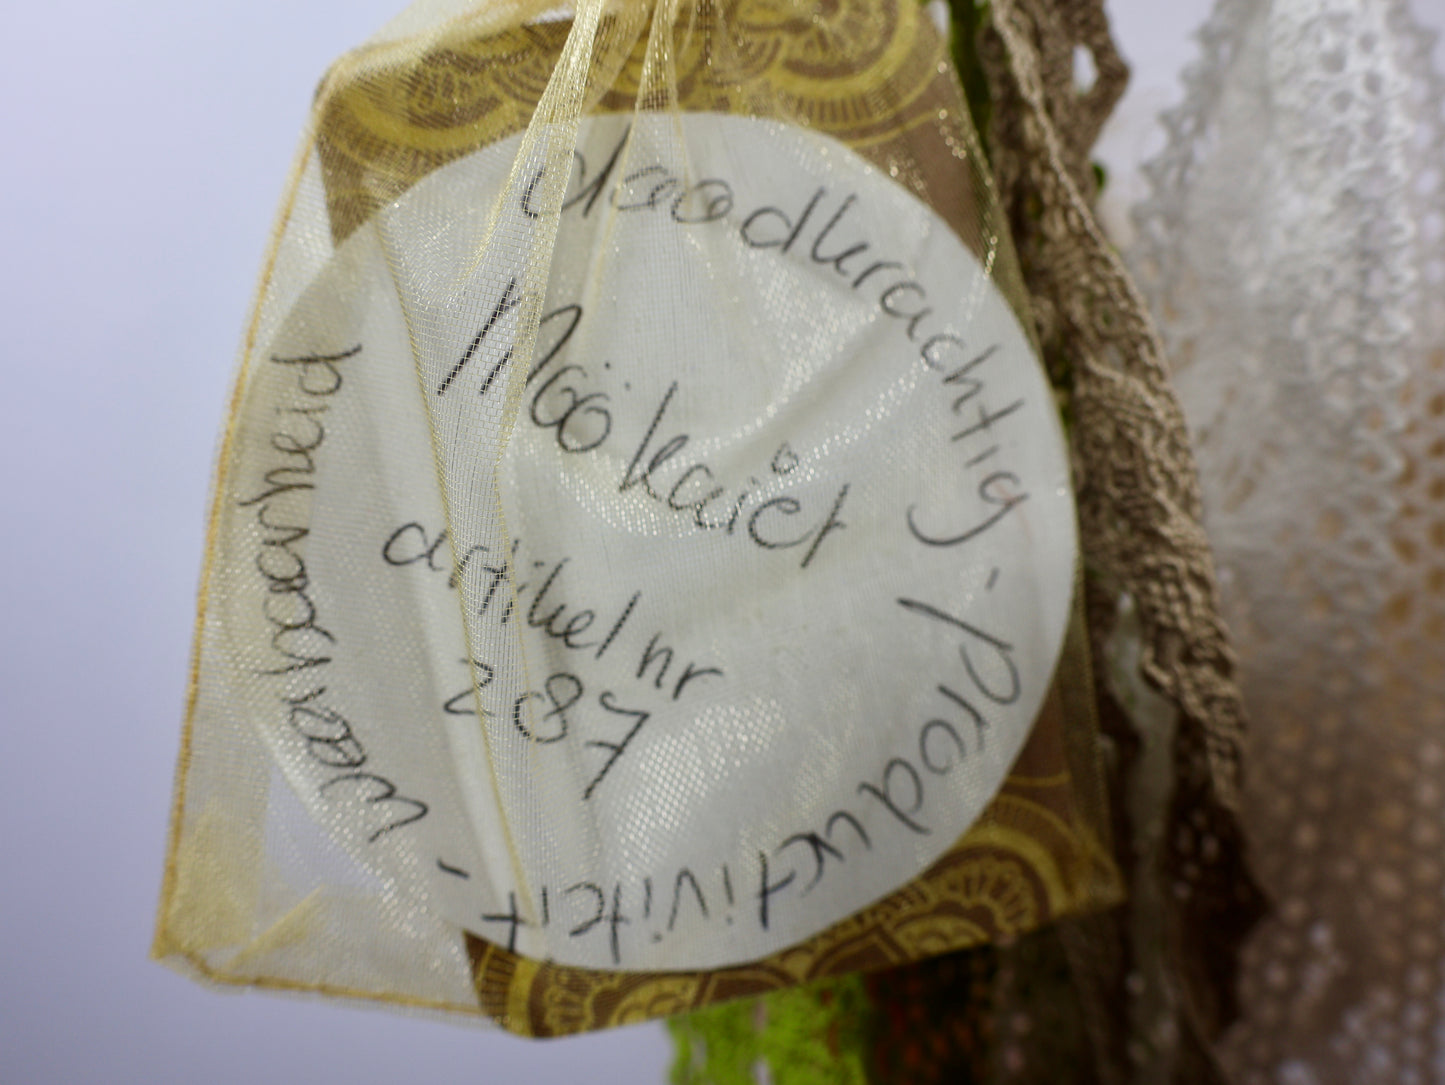 daadkrachtig - Productiviteit -
Weerbaarheid
Mookaiet
artikel nr
287